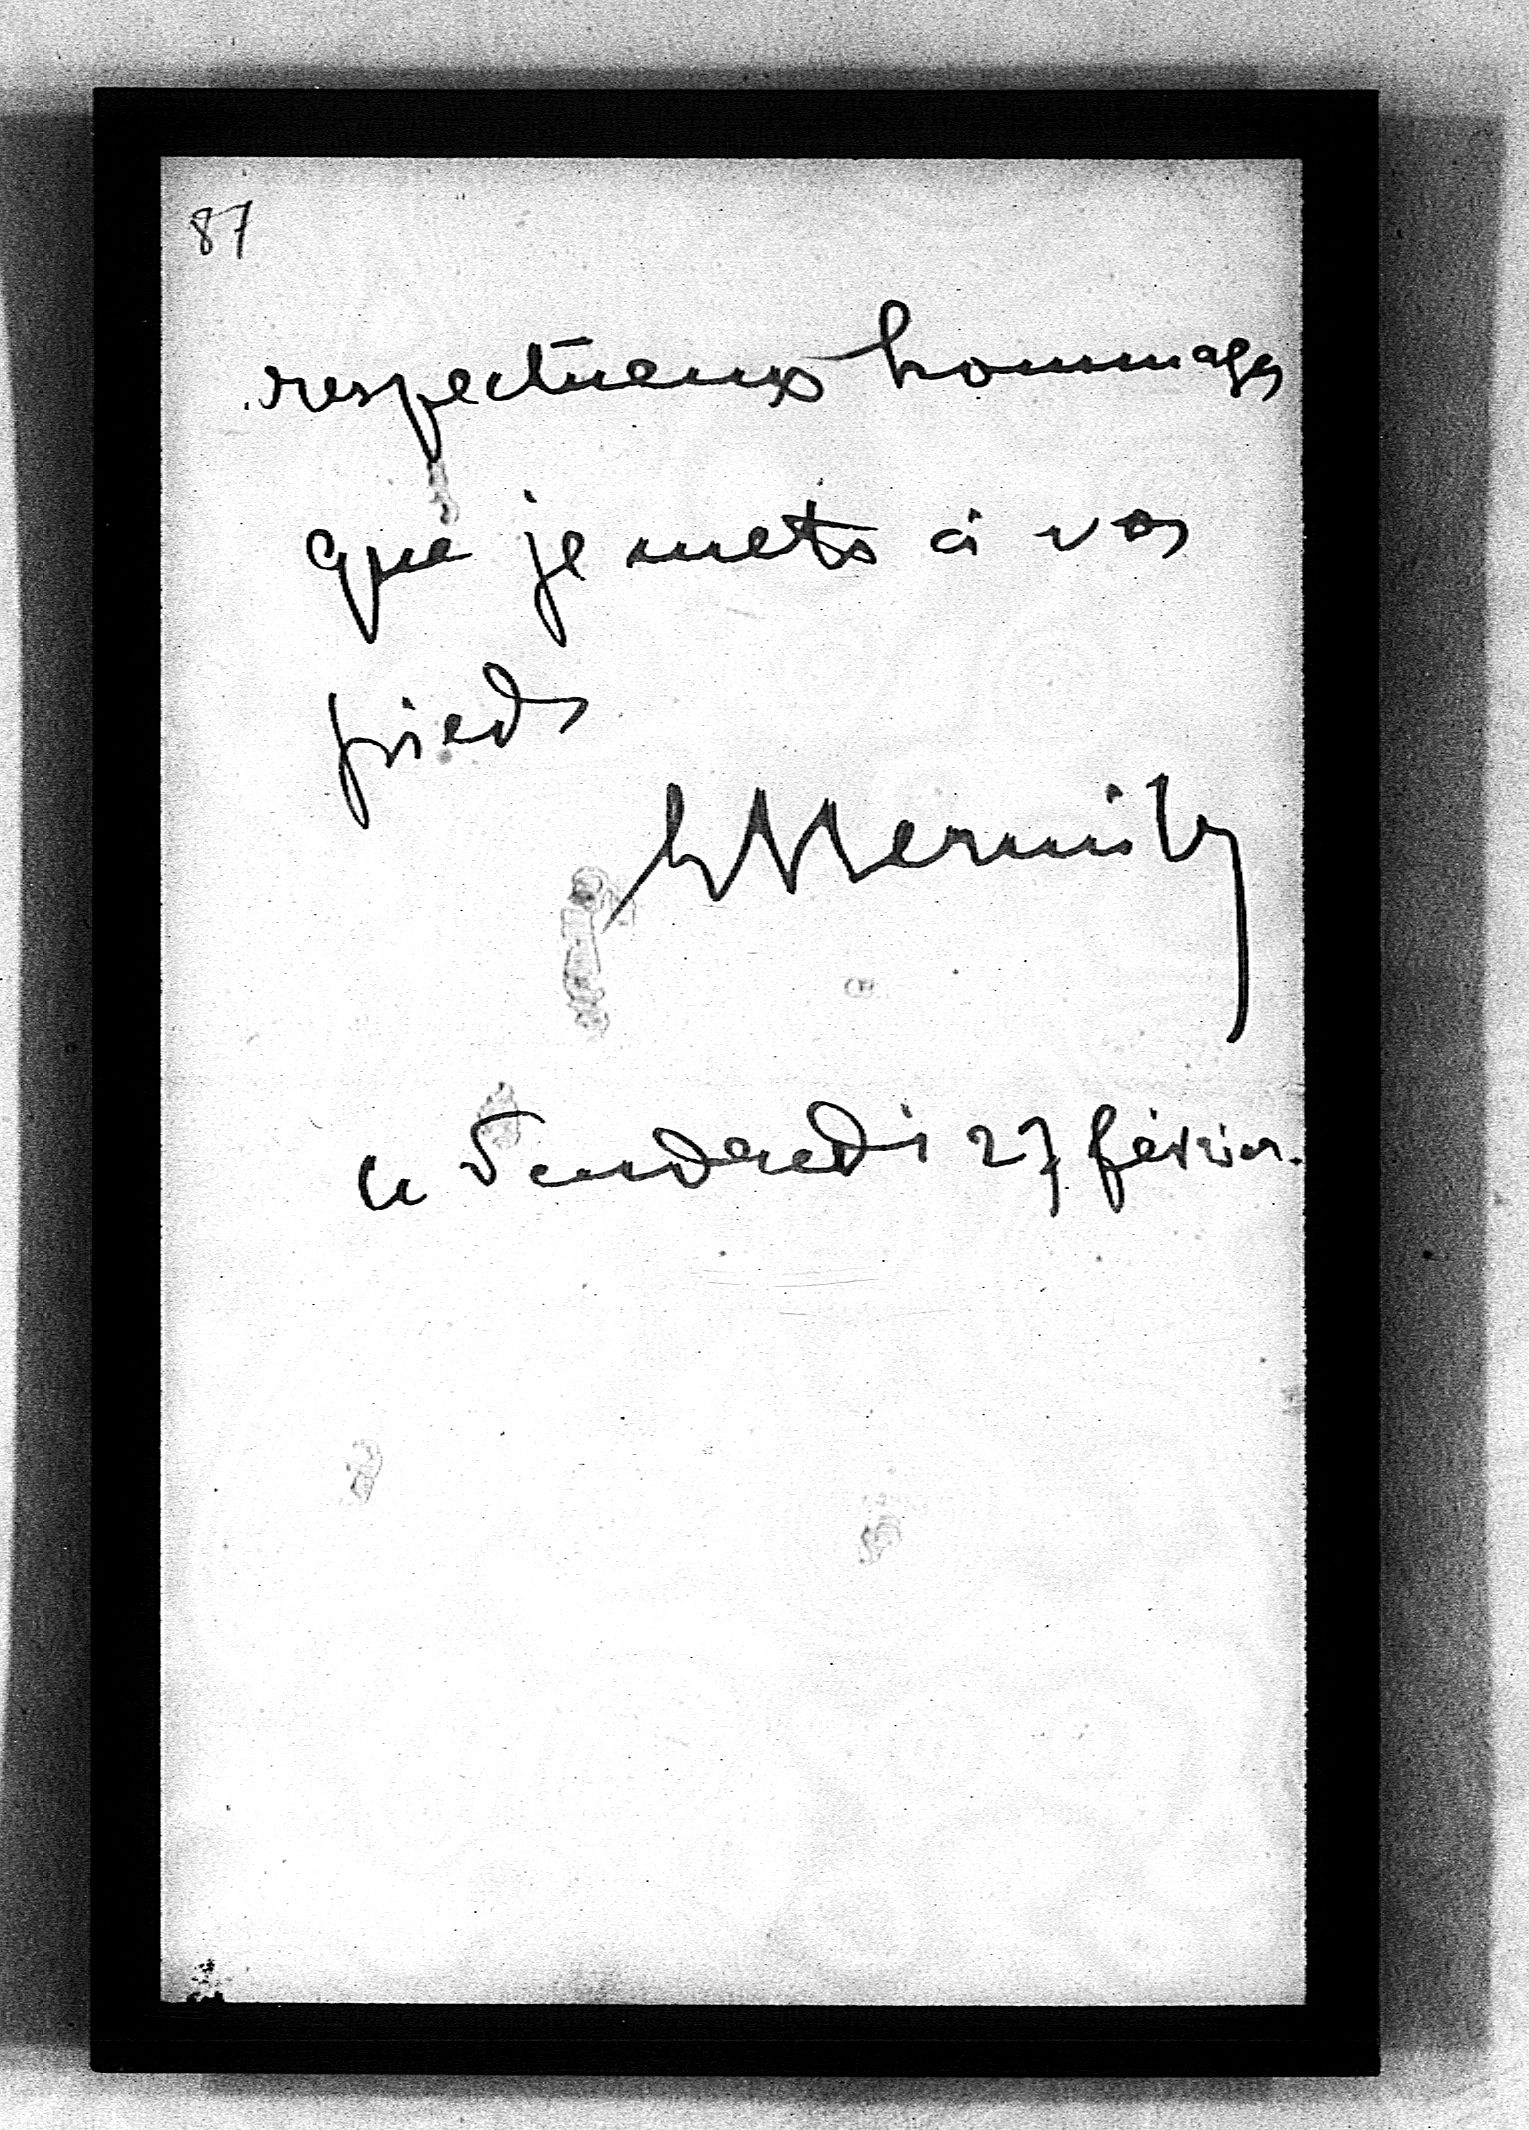 87
respectueux hommages
que je mets à vos
pieds
le Vendredi 27 février.